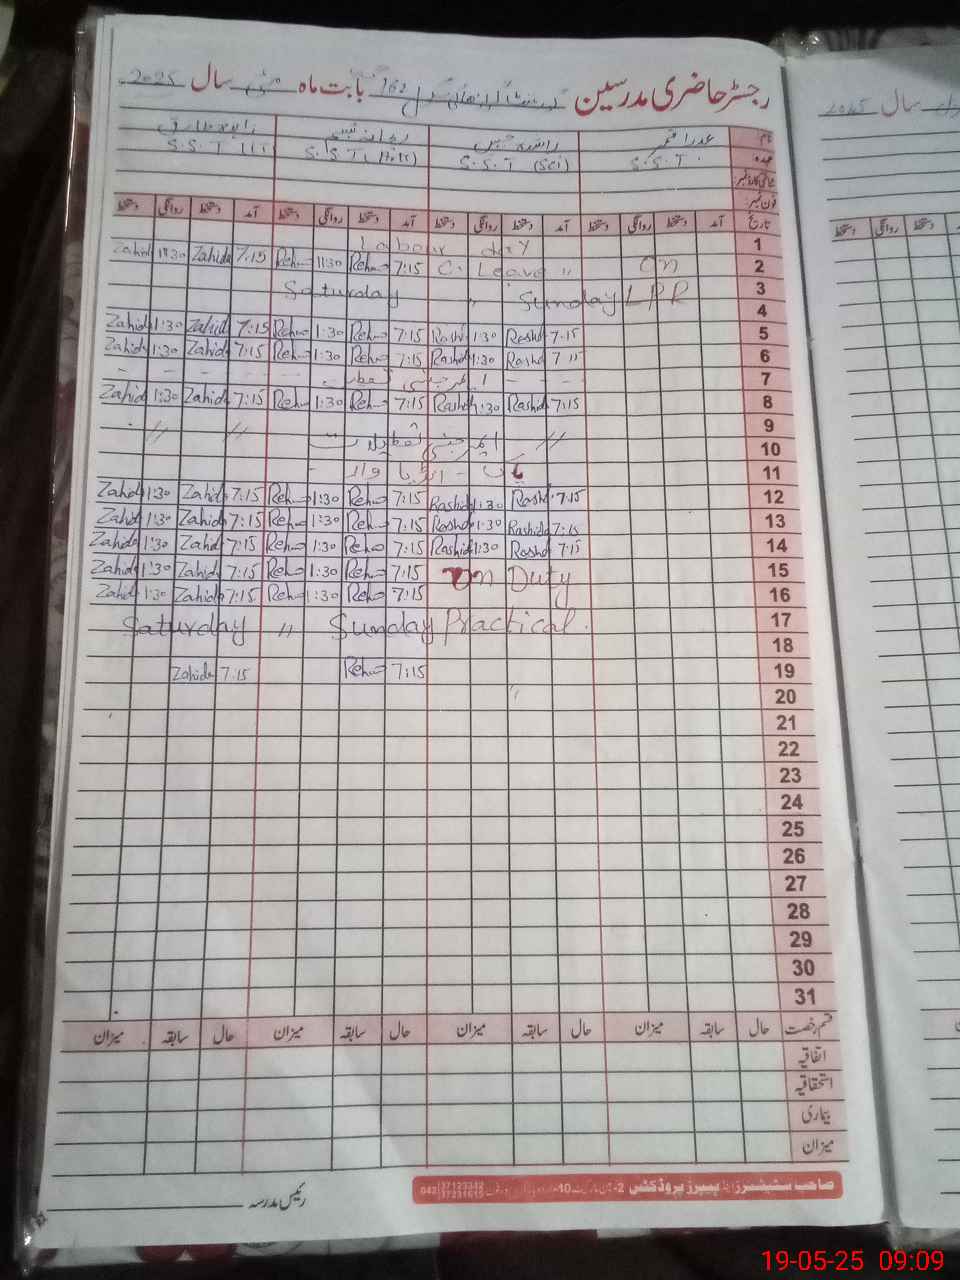 رجسٹر حاضری مدرسین 162 بابت ماہ مئی سال 2025
سال 2025
نام عذرا راشدہ ریحانہ
عہدہ S.S.T. S.S.T (Sci) S.S.T
شناختی کارڈ نمبر:
فون نمبر:
تاریخ آمد دستخط روانگی دستخط آمد دستخط روانگی دستخط آمد دستخط روانگی دستخط آمد دستخط روانگی دستخط
دستخط روانگی دستخط
1 Labour day
2 Zahid 11:30 Zahida 7:15 Reh 11:30 Reh 7:15 C. Leave " On
3 Saturday " Sunday LPR
4
5 Zahid 1:30 Zahid 7:15 Reh 1:30 Reh 7:15 Rash 1:30 Rashd 7:15
6 Zahid 1:30 Zahid 7:15 Reh 1:30 Reh 7:15 Rashd 1:30 Rashd 7:15
7 - - - - ایمرجنسی تعطیل - - -
8 Zahid 1:30 Zahid 7:15 Reh 1:30 Reh 7:15 Rashd 1:30 Rashid 7:15
9
10 " " ایمرجنسی تعطیلات "
11 پاک - انڈیا وار -
12 Zahid 1:30 Zahid 7:15 Reh 1:30 Reh 7:15 Rashd 1:30 Rashd 7:15
13 Zahid 1:30 Zahid 7:15 Reh 1:30 Reh 7:15 Rashd 1:30 Rashida 7:15
14 Zahid 1:30 Zahid 7:15 Reh 1:30 Reh 7:15 Rashid 1:30 Rashd 7:15
15 Zahid 1:30 Zahida 7:15 Reh 1:30 Reh 7:15 On Duty
16 Zahid 1:30 Zahida 7:15 Reh 1:30 Reh 7:15
17 Saturday " Sunday Practical.
18
19 Zahida 7:15 Reh 7:15
20
21
22
23
24
25
26
27
28
29
30
31
قسم رخصت حال سابقہ میزان حال سابقہ میزان حال سابقہ میزان حال سابقہ میزان
اتفاقیہ
استحقاقیہ
بیماری
میزان
رئیس مدرسہ
صاحب سٹیشنرز اینڈ پیپرز پروڈکٹس
042 37123342
37231615
19-05-25 09:09